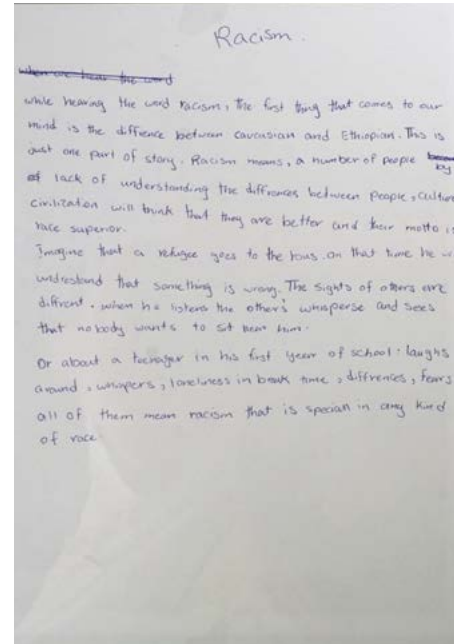 Racism.
when we hear the word
while hearing the word racism, the first thing that comes to our
mind is the diffence between caucasian and Ethiopian. This is
just one part of story. Racism means, a number of people
by
of lack of understanding the diffrences between people, culture
civilization will think that they are better and their motto is
race superior.
Imagine that a refugee goes to the . on that time he
understand that something is wrong. The sights of others are
diffrent. when he listens the other's whisperse and sees
that nobody wants to sit near him.
Or about a teenager in his first year of school: laughs
around, whispers, loneliness in break time, diffrences, fears
all of them mean racism that is in any kind
of race